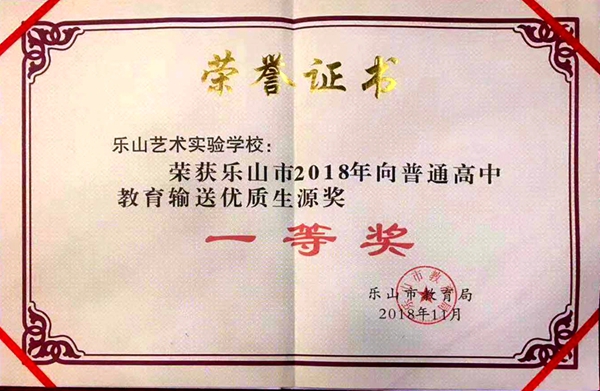 荣誉证书
乐山艺术实验学校：
荣获乐山市2018年向普通高中
教育输送优质生源奖
一等奖
乐山市教育局
2018年11月
乐山市教育局